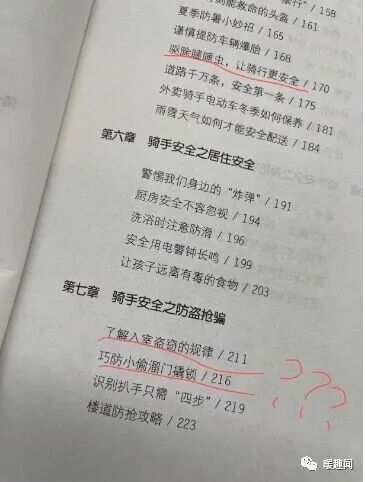 救命的头盔 / 161
夏季防暑小妙招 / 165
谨慎提防车辆爆胎 / 168
驱除瞌睡虫，让骑行更安全 / 170
道路千万条，安全第一条 / 175
外卖骑手电动车冬季如何保养 / 181
雨雪天气如何才能安全配送 / 184
第六章 骑手安全之居住安全
警惕我们身边的“炸弹” / 191
厨房安全不容忽视 / 194
洗浴时注意防滑 / 196
安全用电警钟长鸣 / 199
让孩子远离有毒的食物 / 203
第七章 骑手安全之防盗抢骗
了解入室盗窃的规律 / 211
巧防小偷溜门撬锁 / 216
识别扒手只需“四步” / 219
楼道防抢攻略 / 223
???
暖趣闻